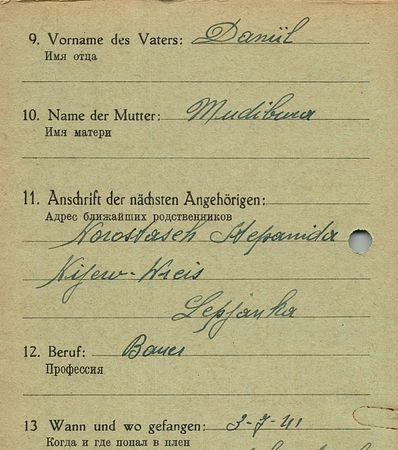 9. Vorname des Vaters: Daniil
Имя отца
10. Name der Mutter: Mudibura
Имя матери
11. Anschrift der nächsten Angehörigen:
Адрес ближайших родственников
Korostasch Stepanida
Kijew-Kreis
Lepjanka
12. Beruf: Bauer
Профессия
13 Wann und wo gefangen: 3-7-41
Когда и где попал в плен